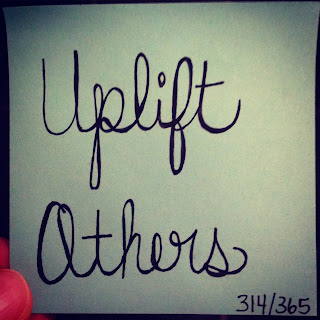 Uplift
Others
314/365